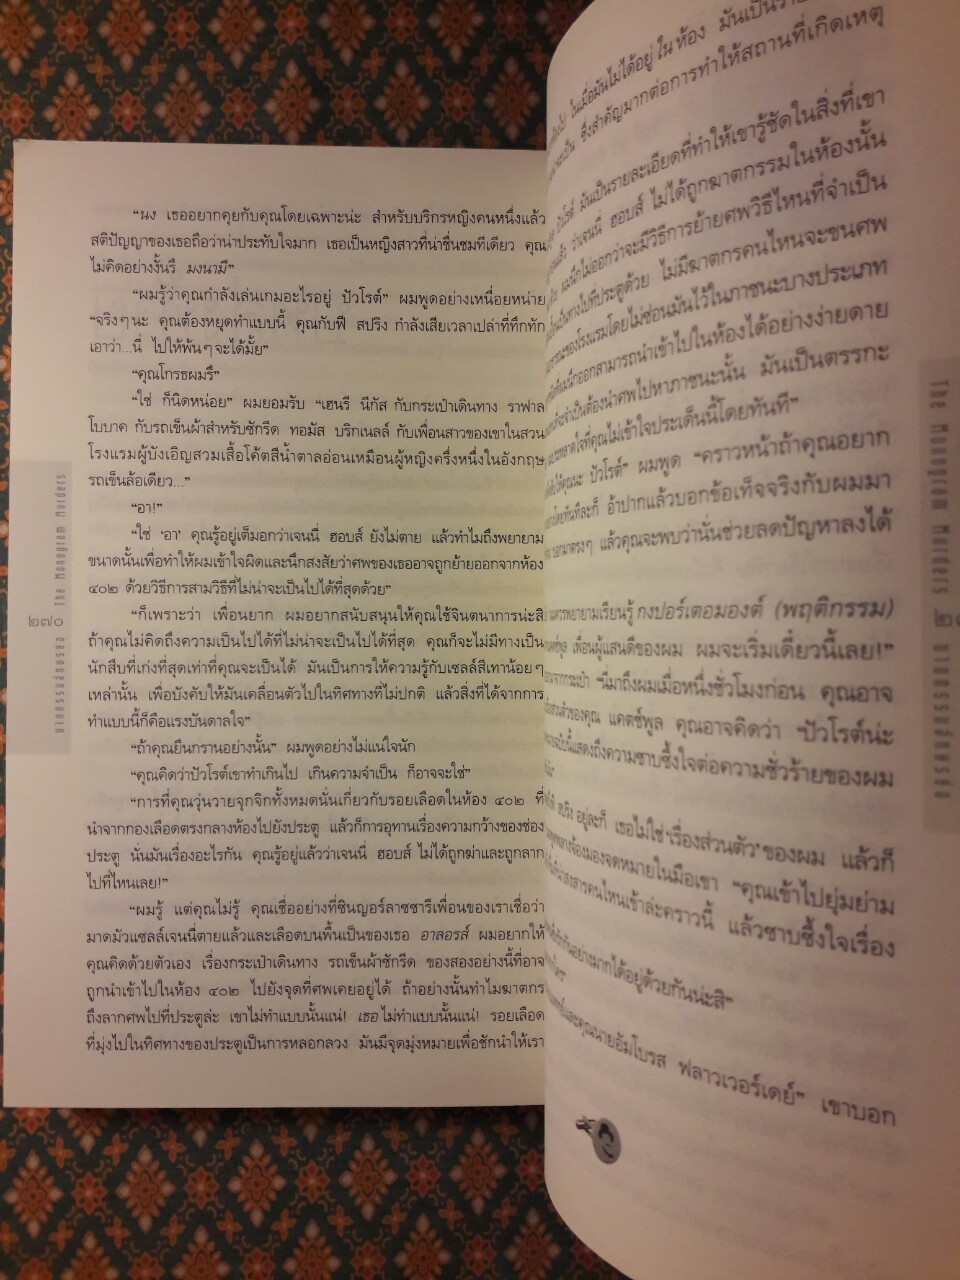 “นง เธออยากคุยกับคุณโดยเฉพาะน่ะ สำหรับบริกรหญิงคนหนึ่งแล้ว
สติปัญญาของเธอถือว่าน่าประทับใจมาก เธอเป็นหญิงสาวที่น่าชื่นชมทีเดียว คุณ
ไม่คิดอย่างงั้นรึ มงนามี”
“ผมรู้ว่าคุณกำลังเล่นเกมอะไรอยู่ ปัวโรต์” ผมพูดอย่างเหนื่อยหน่าย
“จริงๆนะ คุณต้องหยุดทำแบบนี้ คุณกับฟี สปริง กำลังเสียเวลาเปล่าที่ทึกทัก
เอาว่า...นี่ ไปให้พ้นๆจะได้มั้ย”
“คุณโกรธผมรึ”
“ใช่ ก็นิดหน่อย” ผมยอมรับ “เฮนรี นีกัส กับกระเป๋าเดินทาง ราฟาล
โบบาค กับรถเข็นผ้าสำหรับซักรีด ทอมัส บริกเนลล์ กับเพื่อนสาวของเขาในสวน
โรงแรมผู้บังเอิญสวมเสื้อโค้ตสีน้ำตาลอ่อนเหมือนผู้หญิงครึ่งหนึ่งในอังกฤษ
รถเข็นล้อเดียว...”
“อา!”
“ใช่ ‘อา’ คุณรู้อยู่เต็มอกว่าเจนนี่ ฮอบส์ ยังไม่ตาย แล้วทำไมถึงพยายาม
ขนาดนั้นเพื่อทำให้ผมเข้าใจผิดและนึกสงสัยว่าศพของเธออาจถูกย้ายออกจากห้อง
๔๐๒ ด้วยวิธีการสามวิธีที่ไม่น่าจะเป็นไปได้ที่สุดด้วย”
“ก็เพราะว่า เพื่อนยาก ผมอยากสนับสนุนให้คุณใช้จินตนาการน่ะสิ
ถ้าคุณไม่คิดถึงความเป็นไปได้ที่ไม่น่าจะเป็นไปได้ที่สุด คุณก็จะไม่มีทางเป็น
นักสืบที่เก่งที่สุดเท่าที่คุณจะเป็นได้ มันเป็นการให้ความรู้กับเซลล์สีเทาน้อยๆ
เหล่านั้น เพื่อบังคับให้มันเคลื่อนตัวไปในทิศทางที่ไม่ปกติ แล้วสิ่งที่ได้จากการ
ทำแบบนี้ก็คือแรงบันดาลใจ”
“ถ้าคุณยืนกรานอย่างนั้น” ผมพูดอย่างไม่แน่ใจนัก
“คุณคิดว่าปัวโรต์เขาทำเกินไป เกินความจำเป็น ก็อาจจะใช่”
“การที่คุณวุ่นวายจุกจิกทั้งหมดนั่นเกี่ยวกับรอยเลือดในห้อง ๔๐๒ ที่
นำจากกองเลือดตรงกลางห้องไปยังประตู แล้วก็การอุทานเรื่องความกว้างของช่อง
ประตู นั่นมันเรื่องอะไรกัน คุณรู้อยู่แล้วว่าเจนนี่ ฮอบส์ ไม่ได้ถูกฆ่าและถูกลาก
ไปที่ไหนเลย!”
“ผมรู้ แต่คุณไม่รู้ คุณเชื่ออย่างที่ซินญอร์ลาซซารีเพื่อนของเราเชื่อว่า
มาดมัวแซลล์เจนนี่ตายแล้วและเลือดบนพื้นเป็นของเธอ อาลอรส์ ผมอยากให้
คุณคิดด้วยตัวเอง เรื่องกระเป๋าเดินทาง รถเข็นผ้าซักรีด ของสองอย่างนี้ที่อาจ
ถูกนำเข้าไปในห้อง ๔๐๒ ไปยังจุดที่ศพเคยอยู่ได้ ถ้าอย่างนั้นทำไมฆาตกร
ถึงลากศพไปที่ประตูล่ะ เขาไม่ทำแบบนั้นแน่! เธอไม่ทำแบบนั้นแน่! รอยเลือด
ที่มุ่งไปในทิศทางของประตูเป็นการหลอกลวง มันมีจุดมุ่งหมายเพื่อชักนำให้เรา
The Monogram Murders
๒๗๐
ฆาตกรรมซ่อนรหัส
ในเมื่อมันไม่ได้อยู่ ใน ห้อง มันเป็น
ซึ่งสำคัญมากต่อการทำให้สถานที่เกิดเหตุ
มันเป็นรายละเอียดที่ทำให้เขารู้ชัดในสิ่งที่เขา
ว่าเจนนี่ ฮอบส์ ไม่ได้ถูกฆาตกรรมในห้องนั้น
ผมนึกไม่ออกว่าจะมีวิธีการย้ายศพวิธีไหนที่จำเป็น
ไปที่ประตูด้วย ไม่มีฆาตกรคนไหนจะขนศพ
ของโรงแรมโดยไม่ซ่อนมันไว้ในภาชนะบางประเภท
ออกสามารถนำเข้าไปในห้องได้อย่างง่ายดาย
จำเป็นต้องนำศพไปหาภาชนะนั้น มันเป็นตรรกะ
ที่คุณไม่เข้าใจประเด็นนี้โดยทันที”
ปัวโรต์” ผมพูด “คราวหน้าถ้าคุณอยาก
โดยทันทีละก็ อ้าปากแล้วบอกข้อเท็จจริงกับผมมา
บอกมาตรงๆ แล้วคุณจะพบว่านั่นช่วยลดปัญหาลงได้
พยายามเรียนรู้ กงปอร์เตอมองต์ (พฤติกรรม)
เพื่อนผู้แสนดีของผม ผมจะเริ่มเดี๋ยวนี้เลย!”
จากกระเป๋า “นี่มาถึงผมเมื่อหนึ่งชั่วโมงก่อน คุณอาจ
ส่วนตัวของคุณ แคตช์พูล คุณอาจคิดว่า ‘ปัวโรต์น่ะ
นี้แสดงถึงความซาบซึ้งใจต่อความชั่วร้ายของผม
สปริง อยู่ละก็ เธอไม่ใช่ ‘เรื่องส่วนตัว’ ของผม แล้วก็
จ้องมองจดหมายในมือเขา “คุณเข้าไปยุ่มย่าม
น่าสงสารคนไหนเข้าล่ะคราวนี้ แล้วซาบซึ้งใจเรื่อง
กันอย่างมากได้อยู่ด้วยกันน่ะสิ”
และคุณนายอัมโบรส ฟลาวเวอร์เดย์” เขาบอก
The Monogram Murders